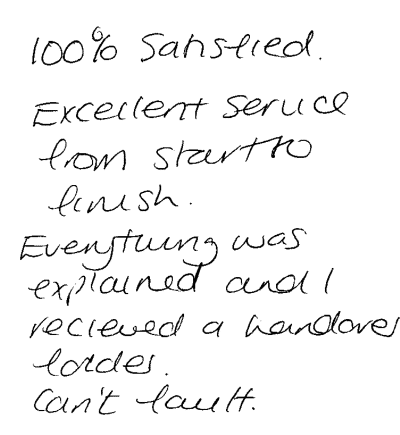 100% Satisfied.
Excellent service
from start to
finish.
Everything was
explained and I
recieved a handover
folder.
Can't fault.